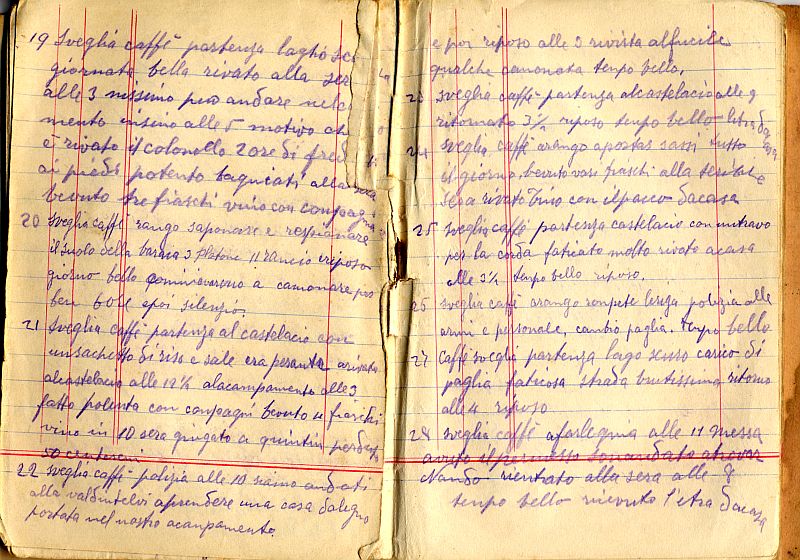 19 Sveglia caffè partenza lagho
giornata bella rivato alla
alle 3 nissimo però andare nel
mento insino alle 5 motivo
è rivato il colonollo 2 ore di
ai piedi potento bagniati alla sera
bevuto tre fiaschi vino con
20 Sveglia caffè rango saponare e
il suolo della baraca 3 platone 11 rancio e riposo
giorno bello a camonare
ben 6 ore e poi silenzio.
21 Sveglia caffè partenza al castelacio con
un sachetto di riso e sale era pesanta arivato
alcastelacio alle 12½ alacampamento alle 3
fatto polenta con conpagni bevuto 4 fiaschi
vino in 10 sera giugato a quintin
50 centesimi
22 Sveglia caffè polizia alle 10 siamo andati
alla a prendere una casa dalegno
portata nel nostro acanpamento.
e poi riposo alle 3 rivista alfucile
qualche camonata tenpo bello.
23 sveglia caffè partenza alcastelacio alle 9
ritornato 3½ riposo tenpo bello
24 sveglia caffè arango sassi tutto
il giorno, bevuto vari fiaschi alla
sera rivato Tino con ilpacco dacasa
25 Sveglia caffè partenza castelacio con untravo
per la corda faticato molto rivato acasa
alle 3½ tenpo bello riposo.
26 sveglia caffè arango ronpete polizia alle
armi e personale, cambio paglia. Tenpo bello
27 Caffè sveglia partenza lago carico di
paglia faticosa strada brutissima ritorno
alle 4 riposo
28 sveglia caffè afarlegnia alle 11 messa
avuto ilpermesso
Nando rientrato alla sera alle 9
tenpo bello ricevuto l'etra dacasa